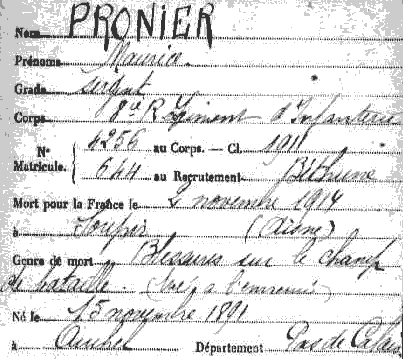 Nom PRONIER
Prénoms Maurice
Grade sergent
Corps 8me Régiment d'Infanterie
No
Matricule.
4256 au Corps. — Cl. 1911
644 au Recrutement Béthune
Mort pour la France le 2 novembre 1914
à Soupir (Aisne)
Genre de mort Blessures sur le champ
de bataille. (Tué à l'ennemi)
Né le 15 novembre 1891
à Auchel Département Pas de Calais